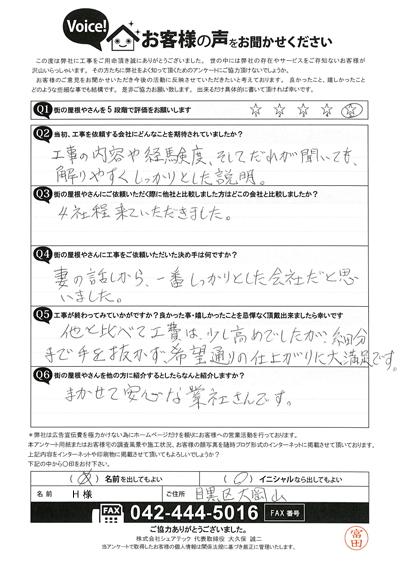 Voice! お客様の声をお聞かせください
この度は弊社に工事をご用命頂き誠にありがとうございました。世の中には弊社の存在やサービスをご存知ないお客様が
沢山いらっしゃいます。その方たちに弊社をよく知って頂くためのアンケートにご協力頂けないでしょうか。
お客様のご意見をお聞かせいただき今後の活動に反映させていただきたいと考えております。良かったこと、嬉しかったこと
どのような些細な事でも結構です。是非ご協力お願い致します。出来るだけ具体的に書いて頂ければ幸いです。
Q1 街の屋根やさんを5段階で評価をお願いします ☆ ☆ ☆ ☆ ☆
Q2 当初、工事を依頼する会社にどんなことを期待されていましたか?
工事の内容や経験度、そしてだれが聞いても、
解りやすくしっかりとした説明。
Q3 街の屋根やさんにご依頼いただく際に他社と比較しました方はどこの会社と比較しましたか?
4社程来ていただきました。
Q4 街の屋根やさんに工事をご依頼いただいた決め手は何ですか?
妻の話しから、一番しっかりとした会社だと思
いました。
Q5 工事が終わってみていかがですか?良かった事・嬉しかったことを忌憚なく頂戴出来ましたら幸いです
他と比べて工費は、少し高めでしたが、細分
まで手を抜かず、希望通りの仕上がりに大満足です。
Q6 街の屋根やさんを他の方に紹介するとしたらなんと紹介しますか?
まかせて安心な業社さんです。
*弊社は広告宣伝費を極力かけない為にホームページだけを頼りにお客様への営業活動を行っております。
本アンケート用紙またはお客様宅の調査風景や施工状況、お客様の顔写真を随時ブログ形式のインターネットに掲載させて頂いております。
上記内容をインターネットや印刷物に掲載させて頂いてもよろしいでしょうか?
下記の中から〇印をお付下さい。
( ) 名前を出してもよい ( 〇 ) イニシャルなら出してもよい
名 前 H 様 ご住所 目黒区大岡山
FAX 042-444-5016 FAX番号
ご協力ありがとうございました。
株式会社シェアテック 代表取締役 大久保 誠二
当アンケートで取得したお客様の個人情報は関係法規に基づき厳正に管理いたします。
富田